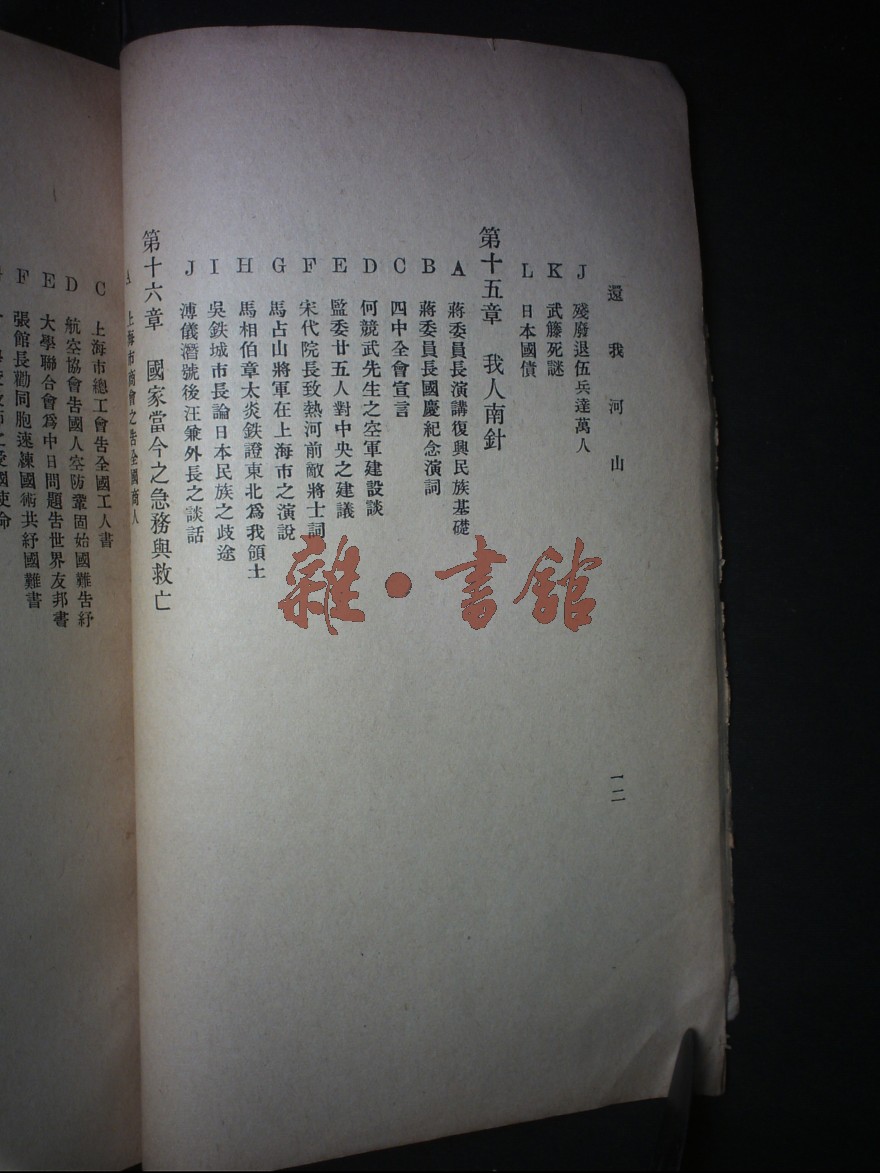 還我河山
一二
J 殘廢退伍兵達萬人
K 武籐死謎
L 日本國債
第十五章 我人南針
A 蔣委員長演講復興民族基礎
B 蔣委員長國慶紀念演詞
C 四中全會宣言
D 何競武先生之空軍建設談
E 監委廿五人對中央之建議
F 宋代院長致熱河前敵將士詞
G 馬占山將軍在上海市之演說
H 馬相伯章太炎鉄證東北爲我領土
I 吳鉄城市長論日本民族之歧途
J 溥儀潛號後汪兼外長之談話
第十六章 國家當今之急務與救亡
A 上海市商會之告全國商人
C 上海市總工會告全國工人書
D 航空協會告國人空防鞏固始國難告紓
E 大學聯合會爲中日問題告世界友邦書
F 張館長勸同胞速練國術共紓國難書
雜·書館